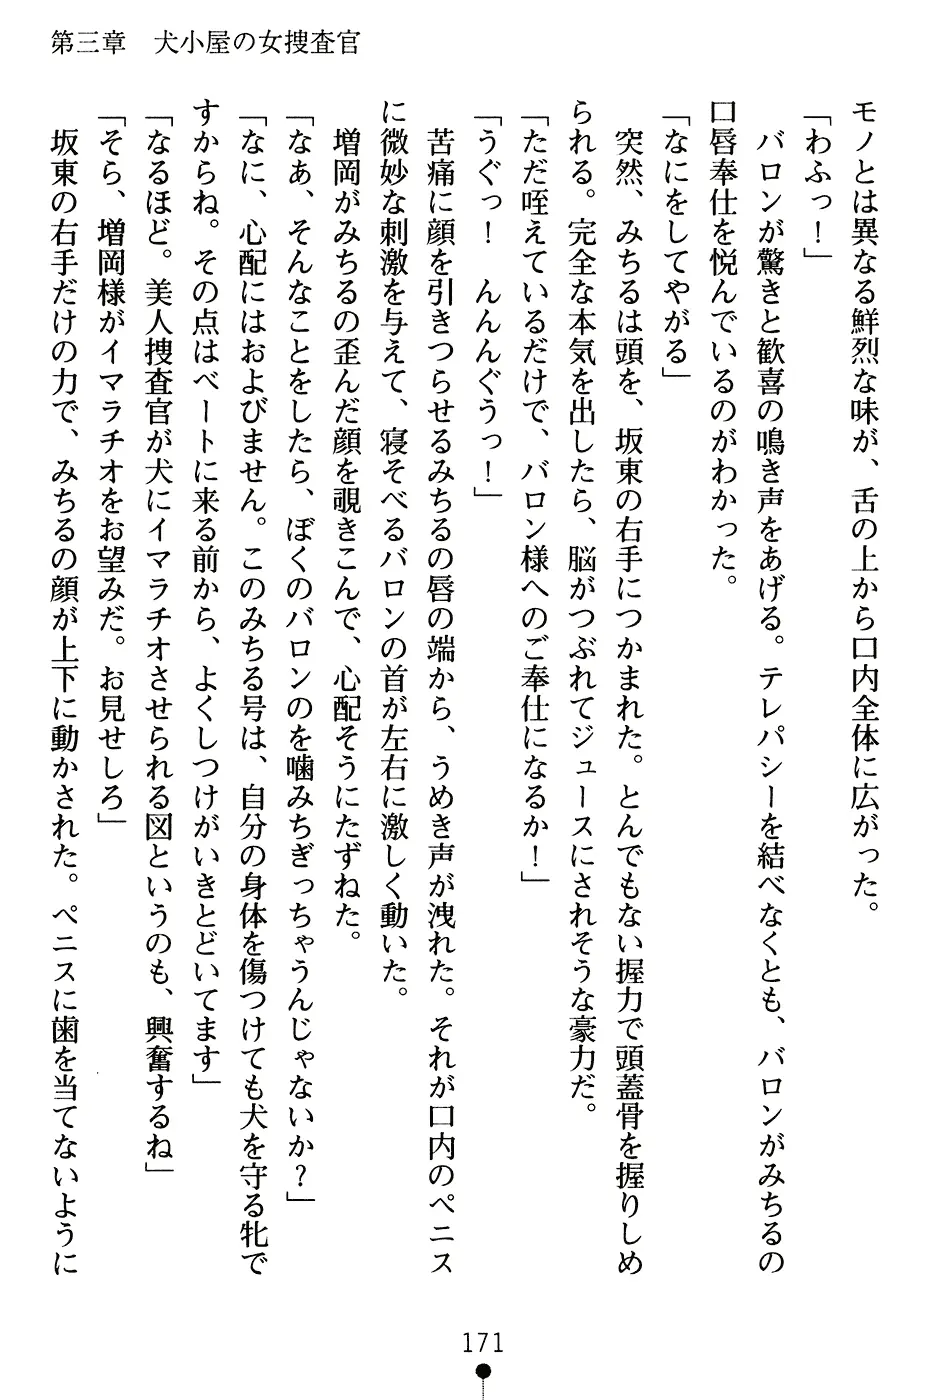 第三章　犬小屋の女捜査官
モノとは異なる鮮烈な味が、舌の上から口内全体に広がった。
「わふっ！」
バロンが驚きと歓喜の鳴き声をあげる。テレパシーを結べなくとも、バロンがみちるの
口唇奉仕を悦んでいるのがわかった。
「なにをしてやがる」
突然、みちるは頭を、坂東の右手につかまれた。とんでもない握力で頭蓋骨を握りしめ
られる。完全な本気を出したら、脳がつぶれてジュースにされそうな豪力だ。
「ただ咥えているだけで、バロン様へのご奉仕になるか！」
「うぐっ！　んんんぐうっ！」
苦痛に顔を引きつらせるみちるの唇の端から、うめき声が洩れた。それが口内のペニス
に微妙な刺激を与えて、寝そべるバロンの首が左右に激しく動いた。
増岡がみちるの歪んだ顔を覗きこんで、心配そうにたずねた。
「なぁ、そんなことをしたら、ぼくのバロンのを噛みちぎっちゃうんじゃないか？」
「なに、心配にはおよびません。このみちる号は、自分の身体を傷つけても犬を守る牝で
すからね。その点はベートに来る前から、よくしつけがいきとどいてます」
「なるほど。美人捜査官が犬にイマラチオさせられる図というのも、興奮するね」
「そら、増岡様がイマラチオをお望みだ。お見せしろ」
坂東の右手だけの力で、みちるの顔が上下に動かされた。ペニスに歯を当てないように
171